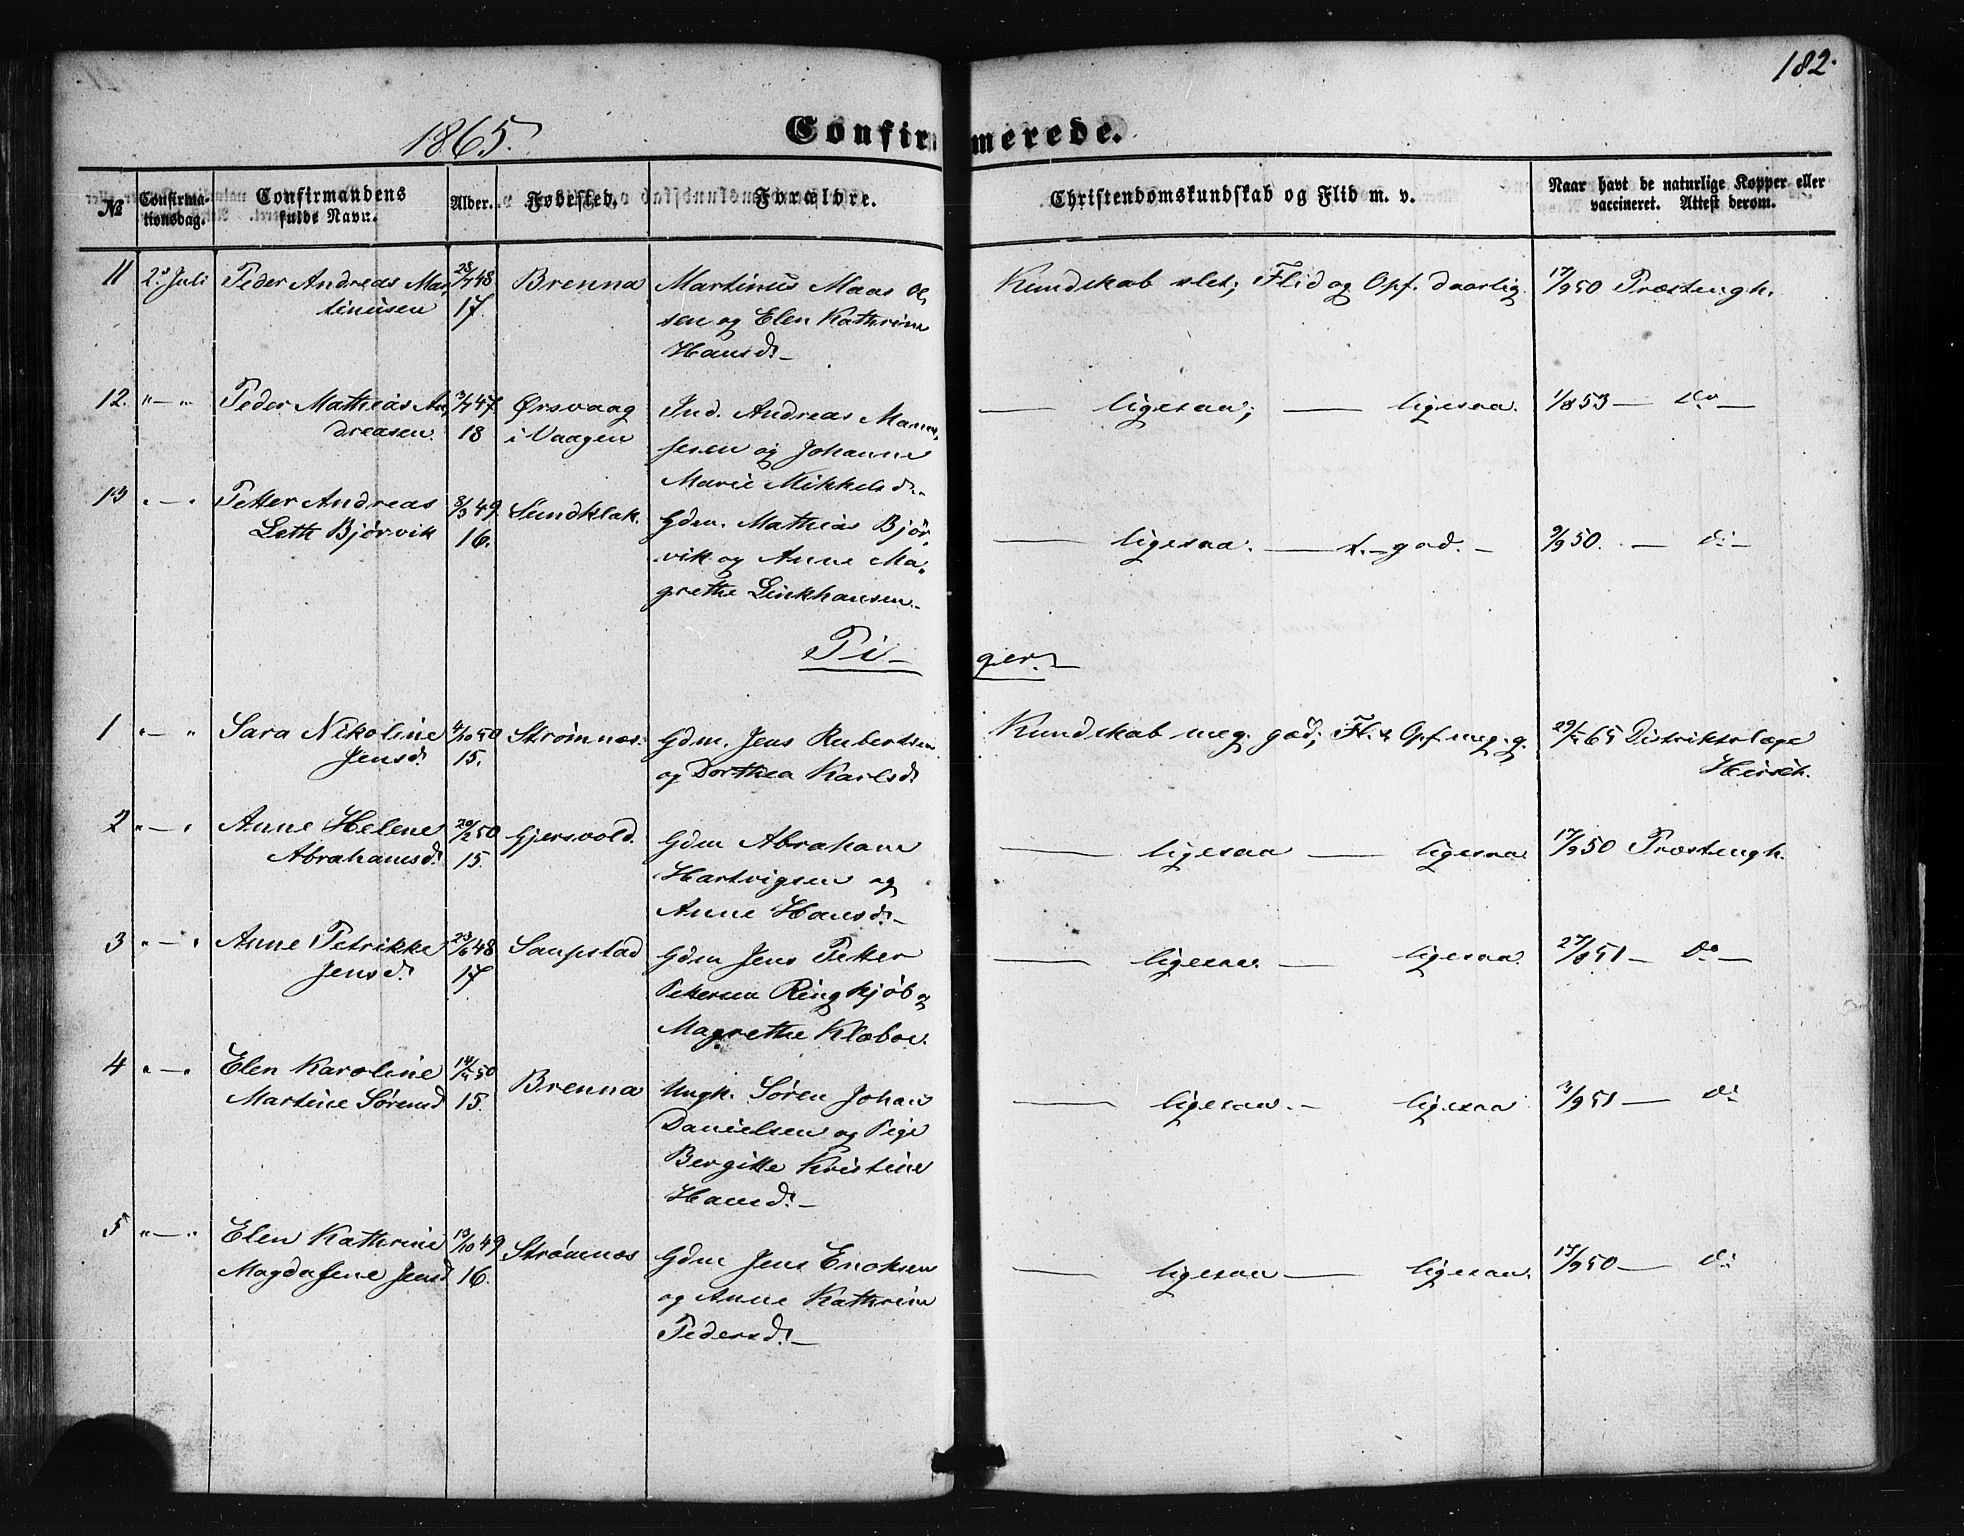 182.
1865.
Confirmerede.
№ Confirmationsdag. Confirmandens fulde Navn. Alder. Fødested. Forældre. Christendomskundskab og Flid m. v. Naar havt de naturlige Kopper eller vaccineret. Attest derom.
11 2. Juli Peder Andreas Mar- 28/7 48 Brenna Martinus Maas Ol- Kundskab slet; Flid og Opf. daarlig. 17/9 50 Præstengh.
tinusen 17 sen og Elen Kathrine
Hansd. –
12. " – " Peder Mathias An- 3/7 47 Ørsvaag Ind. Andreas – ligesaa; – ligesaa. 1/8 53 – Do –
dreasen. 18 i Vaagen og Johanne
Marie Mikkelsd. –
13 " – " Petter Andreas 8/3 49. Sundklak. Gdm. Mathias Bjør- – ligesaa. – god. – 9/9 50. – do –
Leth Bjørvik 16. vik og Anne Ma-
grethe Linkhausen. –
Pi- ger. –
1 " – " Sara Nikoline 4/10 50 Strømnæs. Gdm. Jens Rubertsen Kundskab meg. god; Fl. & Opf. meg. g. 65 Distriktslæge
Jensd. 15. og Dorthea Karlsd. Hirsch.
2 " – " Anne Helene 20/2 50 Gjersvold. Gdm Abraham – ligesaa – ligesaa 17/9 50 Præstengh.
Abrahamsd. 15. Hartvigsen og
Anne Hansd. –
3 " – " Anne Petrikke 23/6 48 Saupstad Gdm Jens Petter – ligesaa. – ligesaa. 27/8 51 – Do –
Jensd. 17 Pettersen Ringkjøb og
Magrethe Klæboe.
4 " – " Elen Karoline 14/4 50 Brenna Ungk. Søren Johan – ligesaa. – ligesaa 3/9 51 – Do
Martine Sørensd 15. Danielsen og Pige
Bergitte Kristine
Hansd. –
5 " – " Elen Kathrine 13/10 49 Strømnæs Gdm Jens Enoksen – ligesaa – ligesaa. 17/9 50 – Do
Magdalene Jensd 16. og Anne Kathrine
Pedersd. –